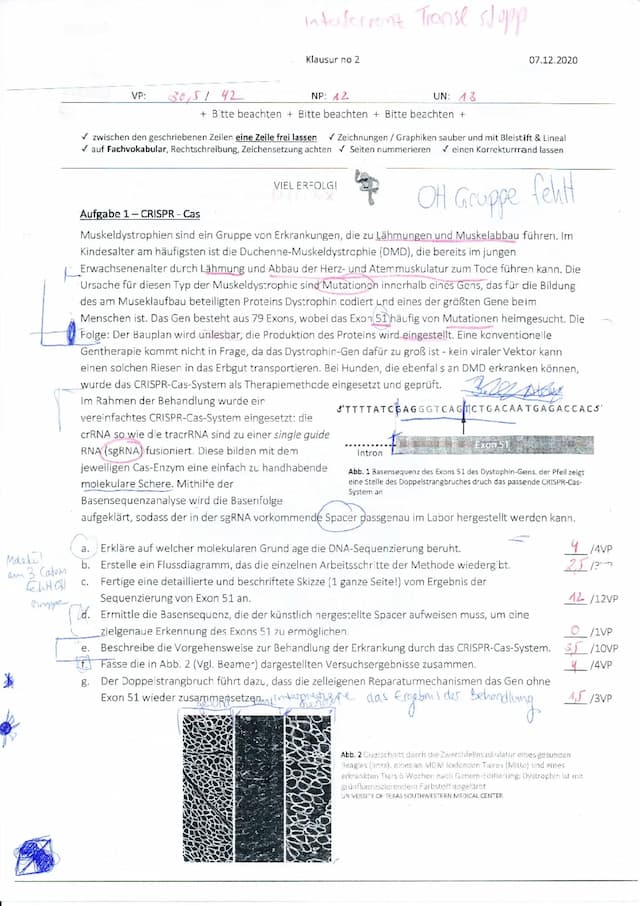 Klausur no 2
07.12.2020
VP: 30,5 / 42 NP: 12 UN: 13
+ Bitte beachten + Bitte beachten + Bitte beachten +
✓ zwischen den geschriebenen Zeilen eine Zeile frei lassen ✓ Zeichnungen / Graphiken sauber und mit Bleistift & Lineal
✓ auf Fachvokabular, Rechtschreibung, Zeichensetzung achten ✓ Seiten nummerieren ✓ einen Korrekturrand lassen
VIEL ERFOLG!
OH Gruppe fehlt
Aufgabe 1 – CRISPR - Cas
Muskeldystrophien sind ein Gruppe von Erkrankungen, die zu Lähmungen und Muskelabbau führen. Im
Kindesalter am häufigsten ist die Duchenne-Muskeldystrophie (DMD), die bereits im jungen
Erwachsenenalter durch Lähmung und Abbau der Herz- und Atemmuskulatur zum Tode führen kann. Die
Ursache für diesen Typ der Muskeldystrophie sind Mutationen innerhalb eines Gens, das für die Bildung
des am Museklaufbau beteiligten Proteins Dystrophin codiert und eines der größten Gene beim
Menschen ist. Das Gen besteht aus 79 Exons, wobei das Exon 51 häufig von Mutationen heimgesucht. Die
Folge: Der Bauplan wird unlesbar, die Produktion des Proteins wird eingestellt. Eine konventionelle
Gentherapie kommt nicht in Frage, da das Dystrophin-Gen dafür zu groß ist - kein viraler Vektor kann
einen solchen Riesen in das Erbgut transportieren. Bei Hunden, die ebenfalls an DMD erkranken können,
wurde das CRISPR-Cas-System als Therapiemethode eingesetzt und geprüft.
Im Rahmen der Behandlung wurde ein
vereinfachtes CRISPR-Cas-System eingesetzt: die
crRNA sowie die tracrRNA sind zu einer single guide
RNA (sgRNA) fusioniert. Diese bilden mit dem
jeweiligen Cas-Enzym eine einfach zu handhabende
molekulare Schere. Mithilfe der
Basensequenzanalyse wird die Basenfolge
aufgeklärt, sodass der in der sgRNA vorkommende Spacer passgenau im Labor hergestellt werden kann.
3'TTTTATCGAGGGTCAGTCTGACAATGAGACCAC5'
Intron
Exon 51
Abb. 1 Basensequenz des Exons 51 des Dystophin-Gens, der Pfeil zeigt
eine Stelle des Doppelstrangbruches druch das passende CRISPR-Cas-
System an
a. Erkläre auf welcher molekularen Grundlage die DNA-Sequenzierung beruht. 4 /4VP
b. Erstelle ein Flussdiagramm, das die einzelnen Arbeitsschritte der Methode wiedergibt. 2,5
c. Fertige eine detaillierte und beschriftete Skizze (1 ganze Seite!) vom Ergebnis der
Sequenzierung von Exon 51 an. 12 /12VP
d. Ermittle die Basensequenz, die der künstlich hergestellte Spacer aufweisen muss, um eine
zielgenaue Erkennung des Exons 51 zu ermöglichen. 0 /1VP
e. Beschreibe die Vorgehensweise zur Behandlung der Erkrankung durch das CRISPR-Cas-System. /10VP
f. Fasse die in Abb. 2 (Vgl. Beamer) dargestellten Versuchsergebnisse zusammen. 4 /4VP
g. Der Doppelstrangbruch führt dazu, dass die zelleigenen Reparaturmechanismen das Gen ohne
Exon 51 wieder zusammensetzen. 1,5 /3VP
das Ergebnis der Behandlung
Abb. 2 Querschnitt durch die Zwerchfellmuskulatur eines gesunden
Beagles (links), eines an MDM leidenden Tieres (Mitte) und eines
erkrankten Tiers 6 Wochen nach Genom-Editierung; Dystrophin ist mit
grünfluoreszierendem Farbstoff angefärbt
UNIVERSITY OF TEXAS SOUTHWESTERN MEDICAL CENTER